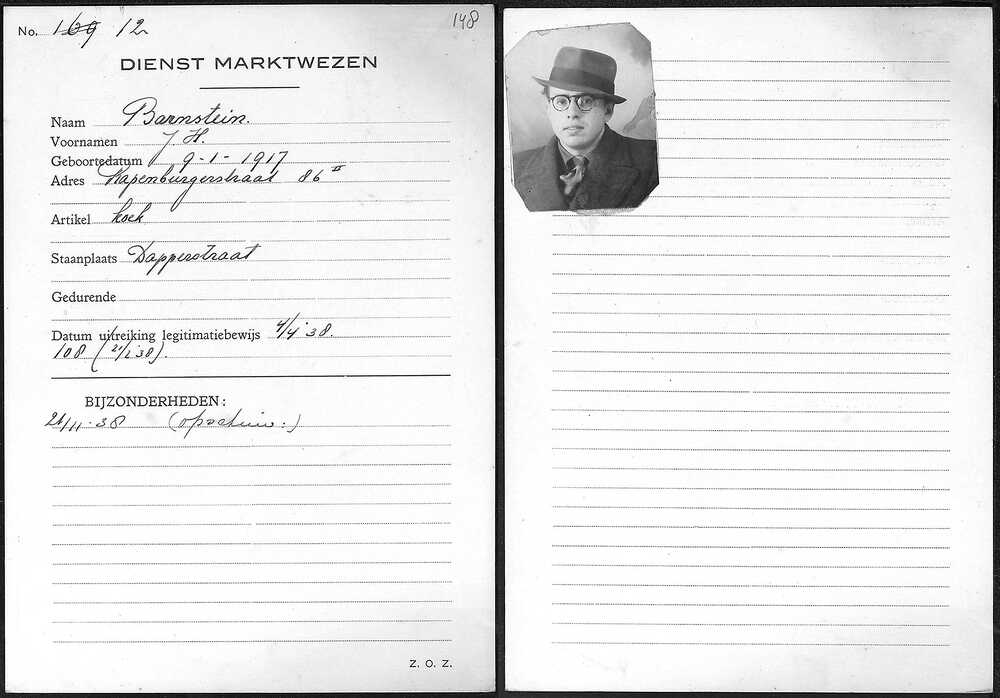 No. 169 12
148
DIENST MARKTWEZEN
Naam Barnstein.
Voornamen J. H.
Geboortedatum 9-1-1917
Adres Rapenburgerstraat 86 II
Artikel koek
Staanplaats Dapperstraat
Gedurende
Datum uitreiking legitimatiebewijs 4/4 '38.
108 (
BIJZONDERHEDEN:
21/11-38
Z. O. Z.